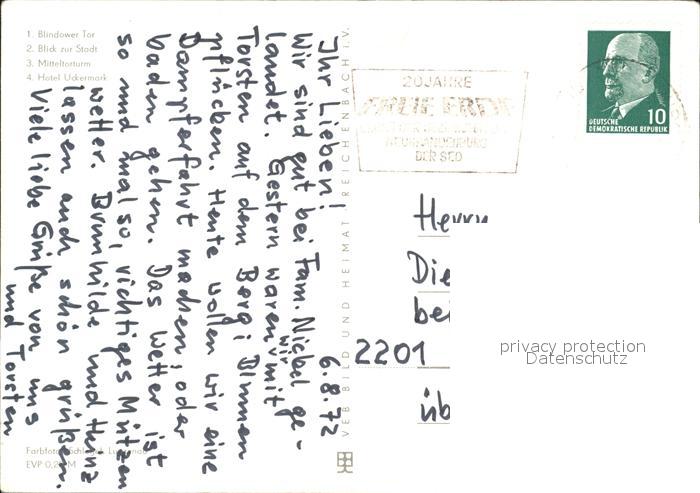 1. Blindower Tor
2. Blick zur Stadt
3. Mitteltorturm
4. Hotel Uckermark
6.8.72
Ihr Lieben!
Wir sind gut bei Fam. Nickel ge-
landet. Gestern waren wir mit
Torsten auf dem Berg; Blumen
pflücken. Heute wollen wir eine
Dampferfahrt machen; oder
baden gehen. Das Wetter ist
so und mal so, richtiges Mützen
wetter. Brunhilde und Heinz
lassen auch schön grüßen.
Viele liebe Grüße von uns
und Torsten
Farbfoto: Schlegel,
EVP 0,20 M
VEB BILD UND HEIMAT REICHENBACH I. V.
20 JAHRE
FREIE ERDE
NEUBRANDENBURG
DER SED
10
DEUTSCHE
DEMOKRATISCHE REPUBLIK
Herrn
Die
bei
2201
üb
privacy protection
Datenschutz